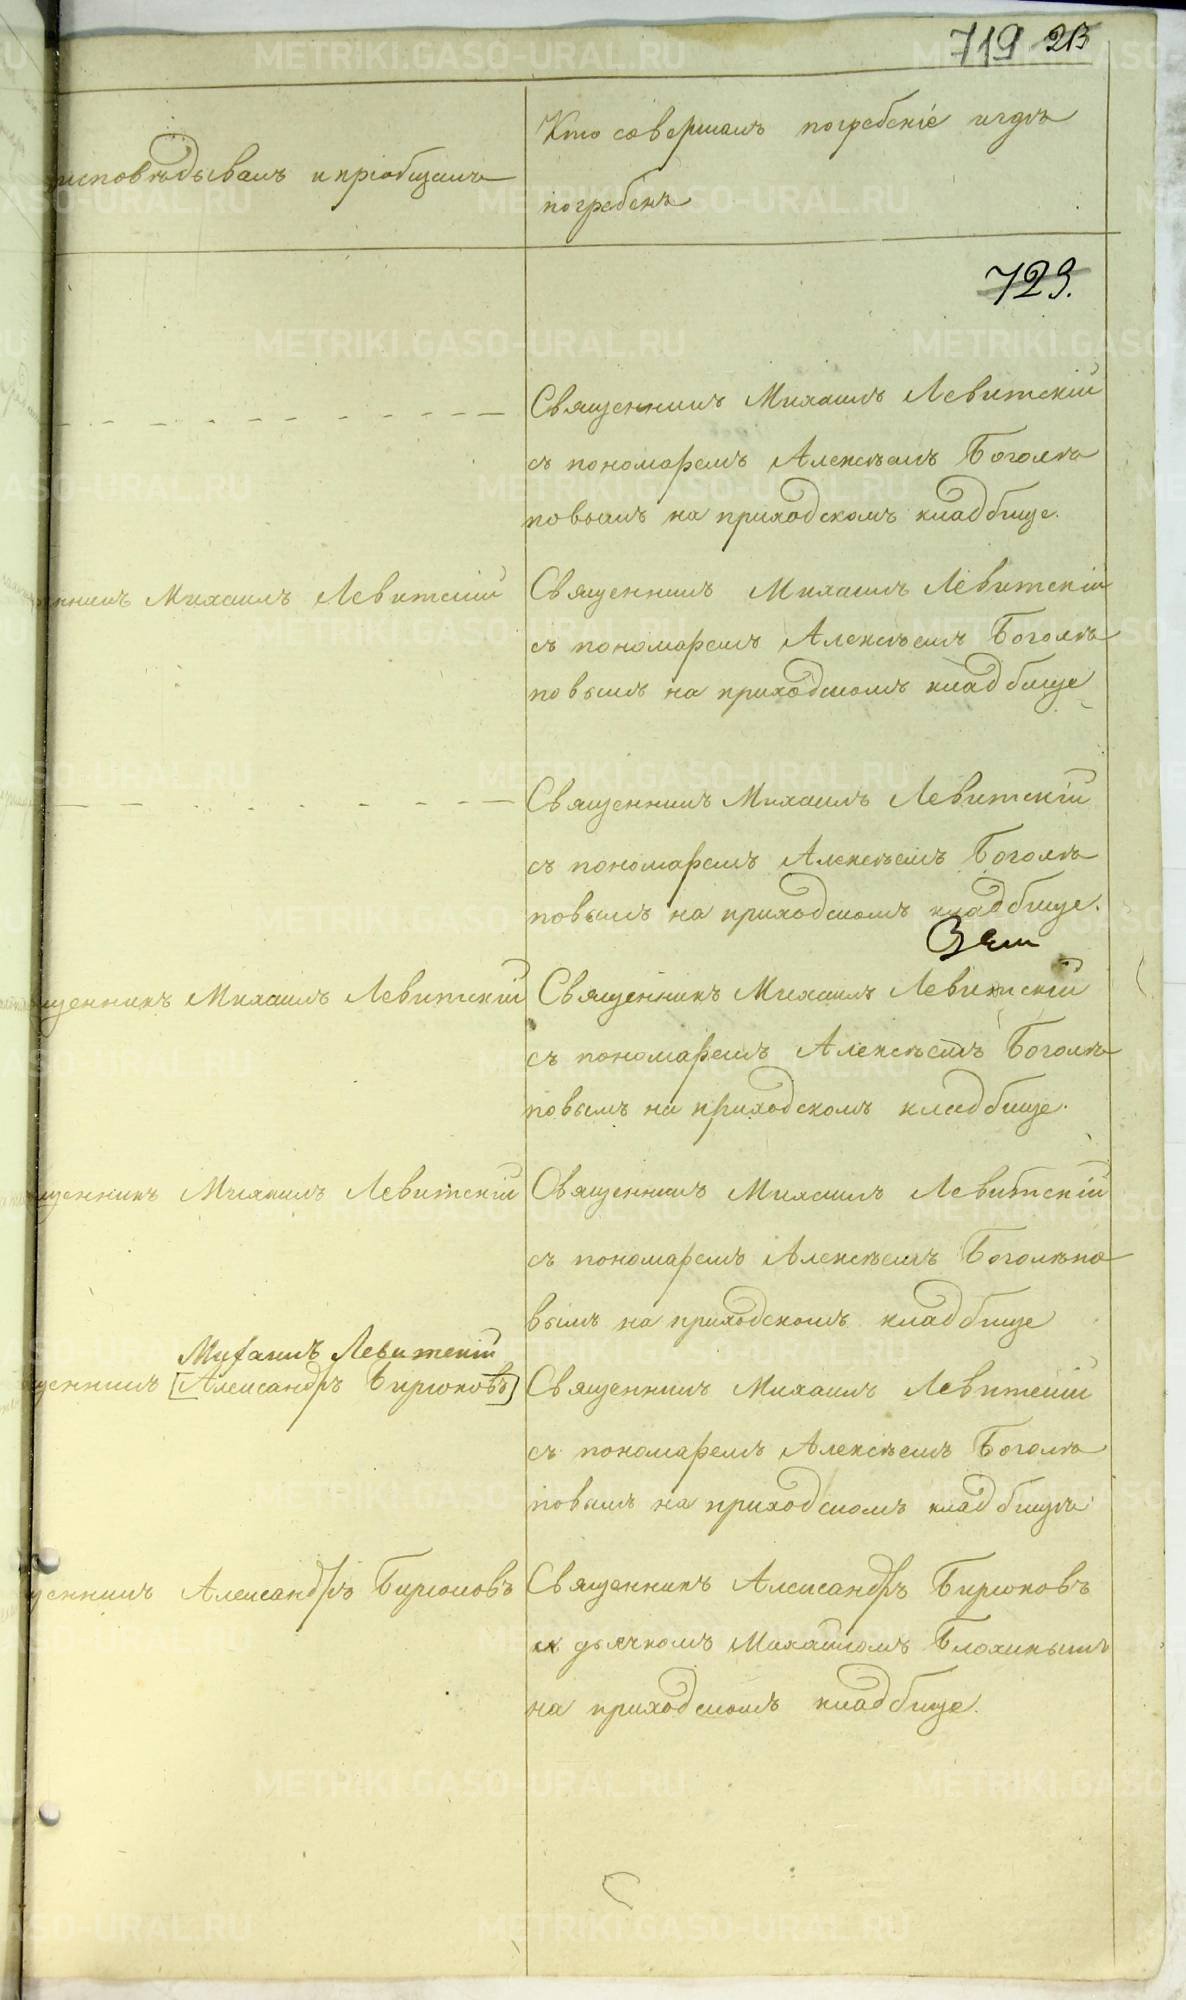 719 213
Кто совершалъ погребеніе и гдѣ
исповѣдывалъ и пріобщалъ
погребенъ
729.
Священникъ Михаилъ Левитскій
съ пономаремъ Алексѣемъ Боголѣ
повымъ на приходскомъ кладбище.
нникъ Михаилъ Левитскій
Священникъ Михаилъ Левитскій
съ пономаремъ Алексѣемъ Боголѣ
повымъ на приходскомъ кладбище
Священникъ Михаилъ Левитскій
съ пономаремъ Алексѣемъ Боголѣ
повымъ на приходскомъ кладбище.
щенникъ Михаилъ Левитскій
Священникъ Михаилъ Левитскій
съ пономаремъ Алексѣемъ Боголѣ
повымъ на приходскомъ кладбище.
щенникъ Михаилъ Левитскій
Священникъ Михаилъ Левитскій
съ пономаремъ Алексѣемъ Боголѣпо
вымъ на приходскомъ кладбище
Михаилъ Левитскій
щенникъ [Александръ Бирюковъ]
Священникъ Михаилъ Левитскій
съ пономаремъ Алексѣемъ Боголѣ
повымъ на приходскомъ кладбищѣ
щенникъ Александръ Бирюковъ
Священникъ Александръ Бирюковъ
съ дьячкомъ Михаиломъ Блохинымъ
на приходскомъ кладбище.
METRIKI.GASO-URAL.RU